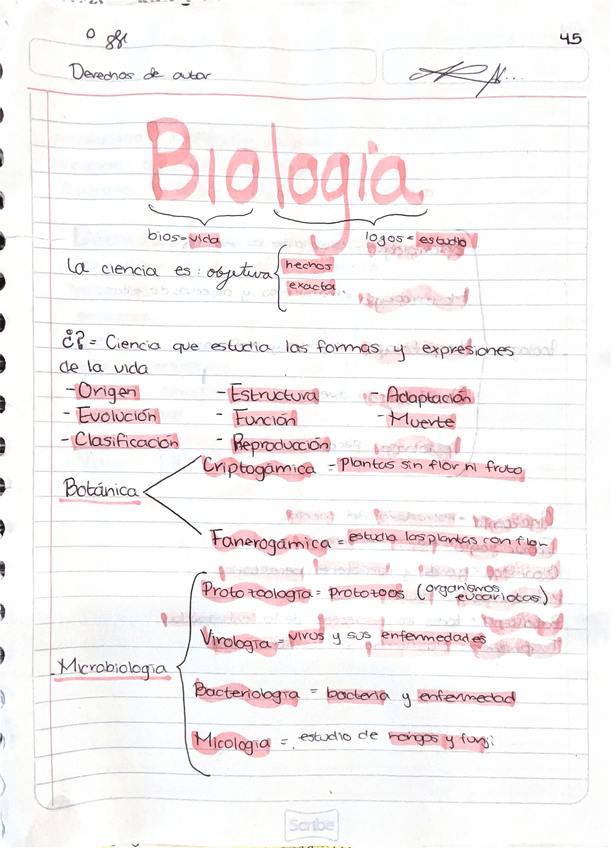 45
Derechos de autor
Biología
bios=vida
logos=estudio
la ciencia es: objetiva
hechos
exacta
¿?= Ciencia que estudia las formas y expresiones
de la vida
-Origen -Estructura -Adaptación
-Evolución -Función -Muerte
-Clasificación -Reproducción
Botánica
Criptogámica = Plantas sin flor ni fruto
Fanerogámica = estudia las plantas con flor
Microbiologia
Protozoologia= protozoos (organismos
eucariotas)
Virologia= virus y sus enfermedades
Bacteriologia = bacteria y enfermedad
Micologia = estudio de hongos y fungi
Scribe